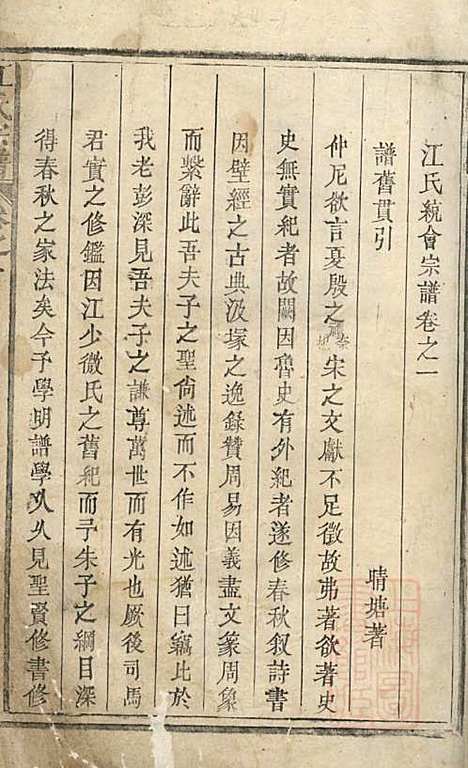 江氏統會宗譜卷之一
譜舊貫引
晴塘著
仲尼欲言夏殷之禮杞宋之文獻不足徵故弗著欲著史
史無實紀者故闕因魯史有外紀者遂修春秋叙詩書
因壁經之古典汲塚之逸錄贊周易因義畫文篆周象
而繫辭此吾夫子之聖尙述而不作如述猶曰竊比於
我老彭深見吾夫子之謙尊萬世而有光也厥後司馬
君實之修鑑因江少微氏之舊紀而子朱子之綱目深
得春秋之家法矣今予學明譜學久久見聖賢修書修